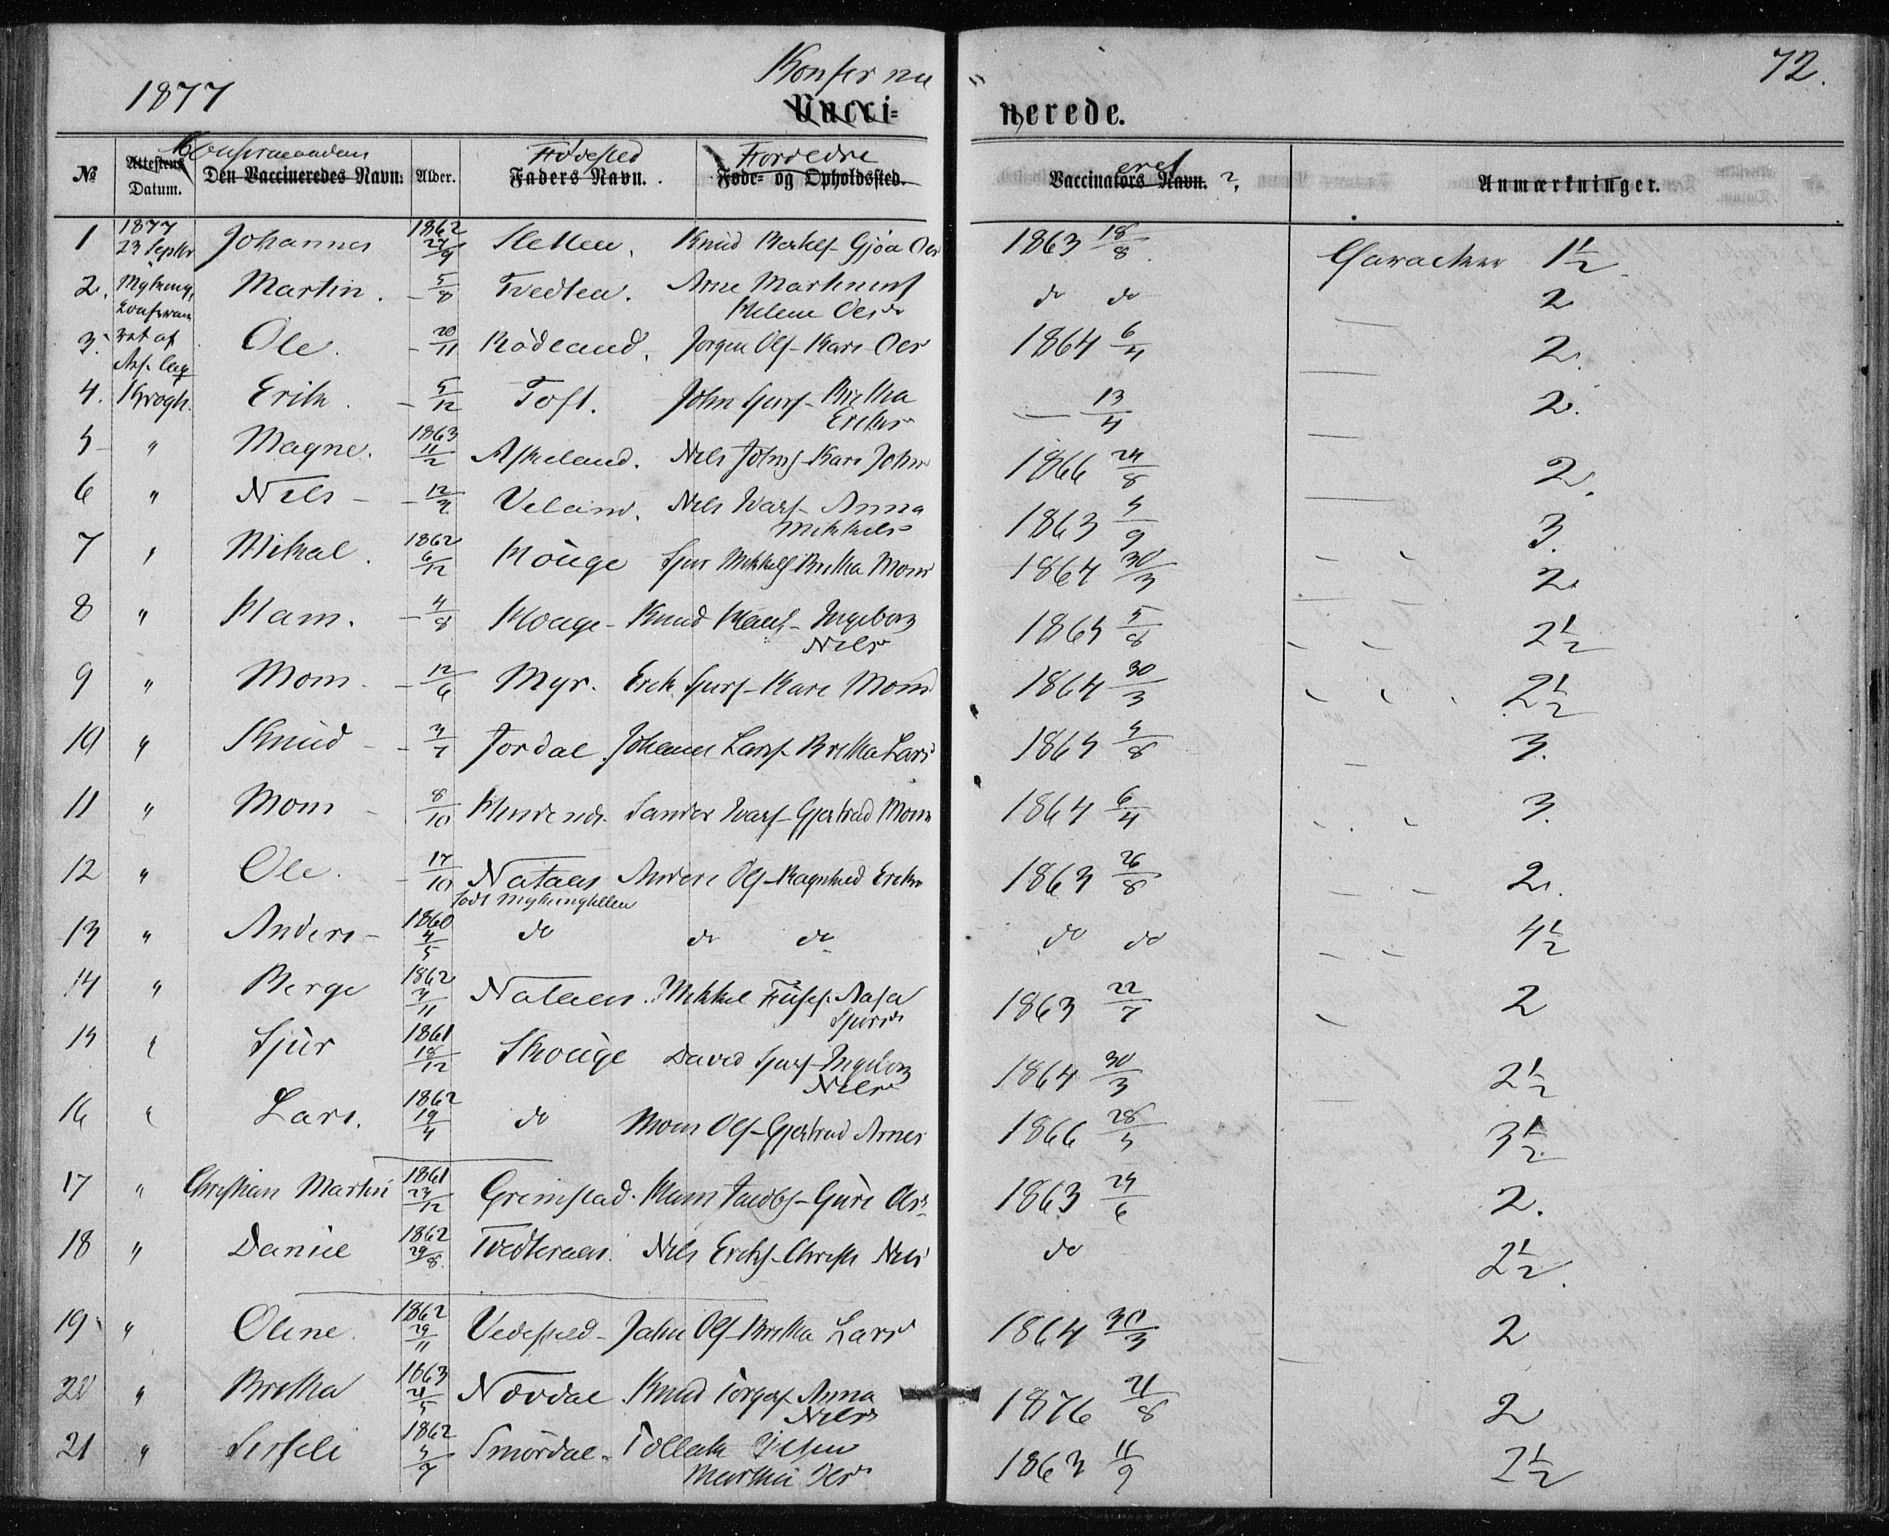 1877
Konfir me
72.
Vacci=
nerede.
№
Attestens Datum.
Konfirmandens
Den Vaccineredes Navn:
Alder.
Födested
Faders Navn.
Forældre
Føde- og Opholdssted.
Vaccinators Navn. eret ?
Anmærkninger.
1 1877 23 Septbr Johannes 1862 27/9 Sletten. Knud Gjøa Ols 1863 18/8 Caracteer 1½
2. Martin. - 5/8 Tvedten. Arne Martinus Helene Olsd do do 2
3. Ole. - 20/11 Rödland. Jørgen Ols- Kari Ols 1864 6/4 2.
4. Krogh. Erik. - 5/12 Toft. John Sjurs- Britha Eriks 13/4 2.
5 " Magne. 1863 11/2 Askeland. Nils Johns- Kari John 1866 24/8 2.
6 " Nils - 12/4 Veland. Nils Ivars- Anna Mikkels 1863 5/9 3.
7 " Mikal. 1862 6/12 Houge Sjur Mikkels Britha Mons 1864 30/3 2
8 " Ham. - 4/8 Houge- Knud Ingeborg Nils 1865 5/8 2½
9 " Mons. - 12/6 Myr. Erik Sjurs- Kari Mons 1864 30/3 2½
10 " Knud - 3/7 Jordal Johannes Lars- Britha Lars 1865 5/8 3.
11 " Mons - 8/10 Sander Ivars- Gjertrud Mons 1864 6/4 3.
12 " Ole. - 17/10 Nataas Anders Ols- Ragnhild Eriks 1863 26/8 2.
født Mykingtellen
13 " Anders - 1860 4/5 do do do do do 4½
14 " Berge 1862 3/11 Nataas. Mikkel Aasa Sjursd 1863 22/7 2
15 " Sjur 1861 18/12 Skouge David Sjurs- Ingeborg Nils 1864 30/3 2½
16 " Lars. 1862 19/4 do Mons Ols- Gjertrud Arnes 1866 28/5 3½
17 " Christian Martin 1861 24/12 Grimstad. Hans Jacobs- Guri Ols 1863 24/6 2.
18 " Daniel 1862 29/8 Tvedteraas. Nils Eriks- Christi Nils do 2½.
19 " Oline. 1862 29/11 Vedefjeld- John Ols- Britha Lars 1864 30/3 2
20 " Britha 1863 21/5 Nordal Knud Torgers- Anna Nilsd 1876 21/8 2
21 " Sisseli 1862 3/7 Smørdal- Tollak Martha Ols 1863 11/9 2½